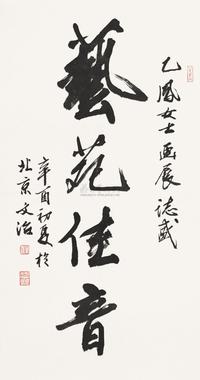 乙凤女士画展志盛
藝苑佳音
辛酉初夏於
北京文治